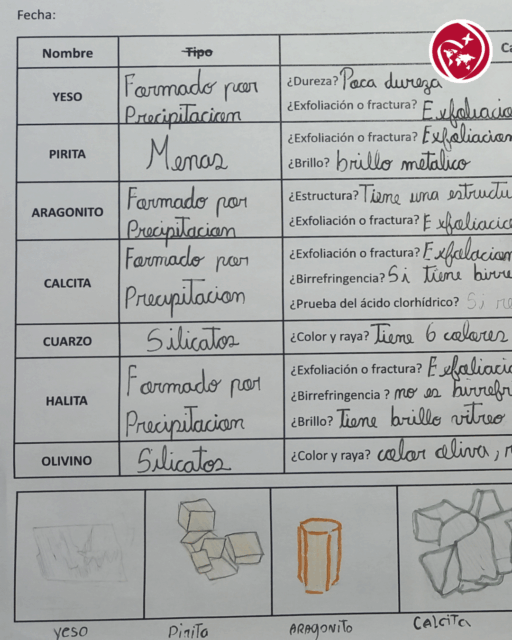 Fecha:
Nombre Tipo Ca
YESO Formado por Precipitacion ¿Dureza? Poca dureza
¿Exfoliación o fractura? Exfoliacio
PIRITA Menas ¿Exfoliación o fractura? Exfoliacion
¿Brillo? brillo metalico
ARAGONITO Formado por Precipitacion ¿Estructura? Tiene una estructu
¿Exfoliación o fractura? Exfoliacio
CALCITA Formado por Precipitacion ¿Exfoliación o fractura? Exfolacion
¿Birrefringencia? Si tiene birre
¿Prueba del ácido clorhídrico? Si re
CUARZO Silicatos ¿Color y raya? Tiene 6 colores
HALITA Formado por Precipitacion ¿Exfoliación o fractura? Exfoliacio
¿Birrefringencia ? no es birrefr
¿Brillo? Tiene brillo vitreo
OLIVINO Silicatos ¿Color y raya? color oliva, r
yeso Pirita ARAGONITO CALCITA